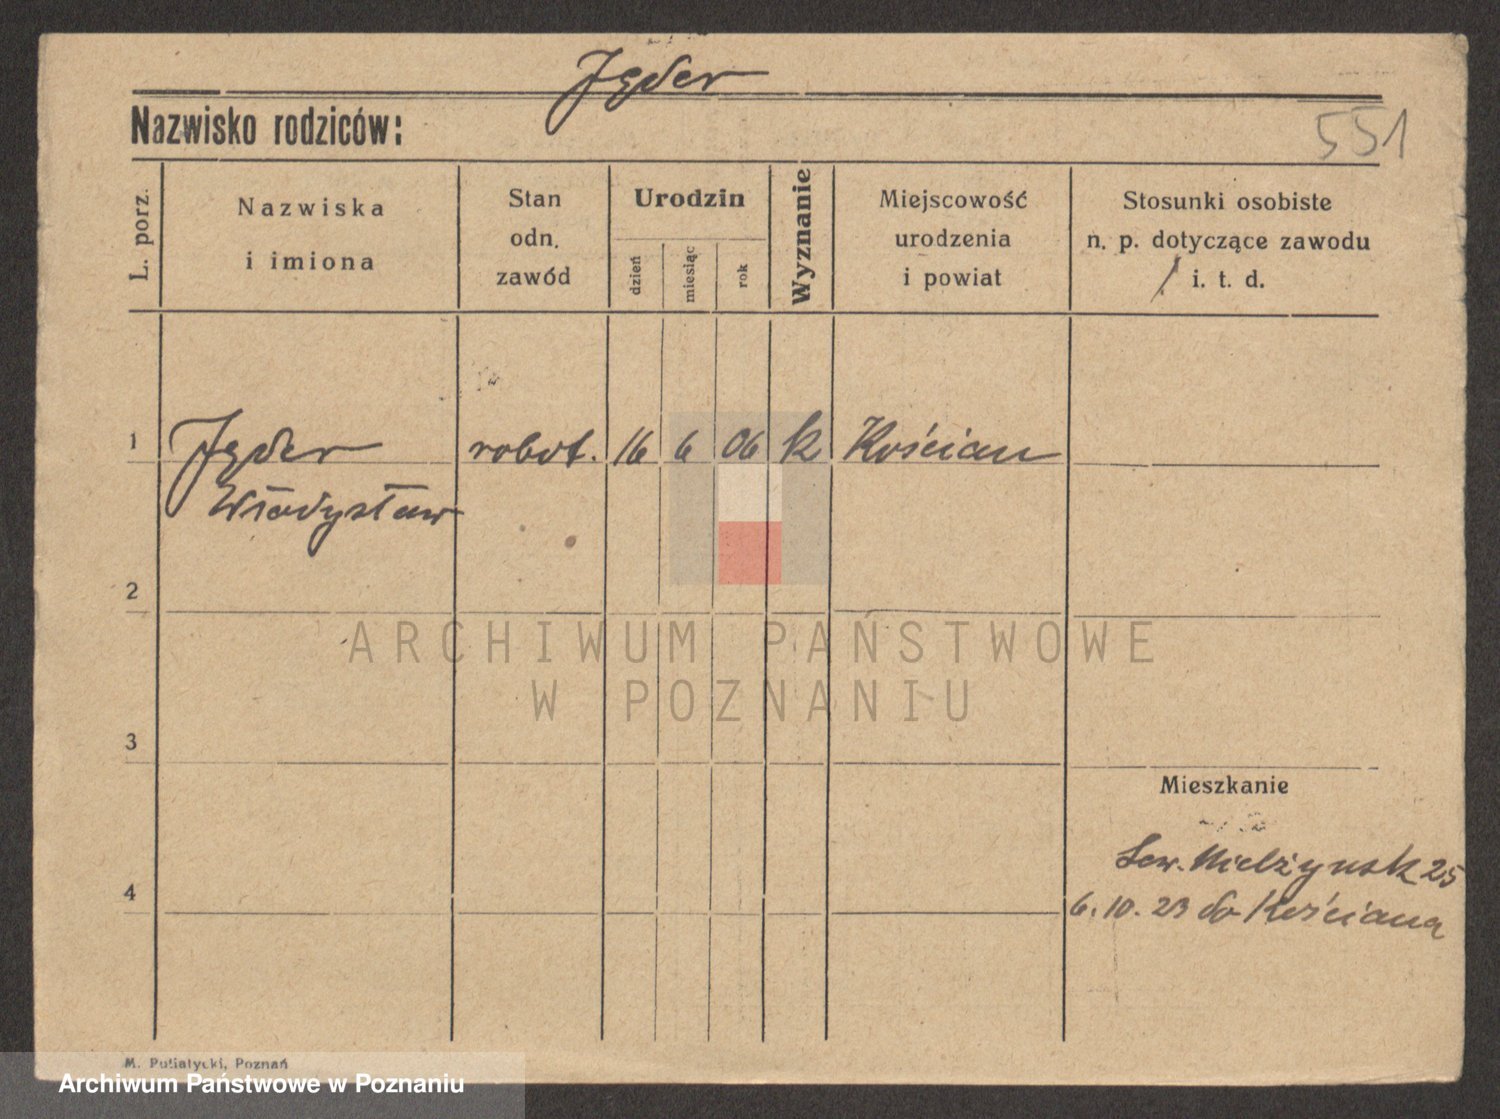 Jęder
Nazwisko rodziców:
551
L. porz.
Nazwiska
i imiona
Stan
odn.
zawód
Urodzin
dzień
miesiąc
rok
Wyznanie
Miejscowość
urodzenia
i powiat
Stosunki osobiste
n. p. dotyczące zawodu
i. t. d.
1 Jęder robot. 16 6 06 k Kościan
Władysław
2
ARCHIWUM PAŃSTWOWE
W POZNANIU
3
Mieszkanie
Sew. Mielżyńsk 25
4
6.10.23 do Kościana
M. Putiatycki, Poznań
Archiwum Państwowe w Poznaniu